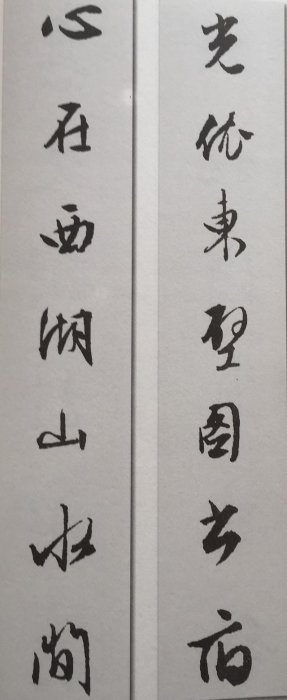 光依東壁圖書府
心在西湖山水間